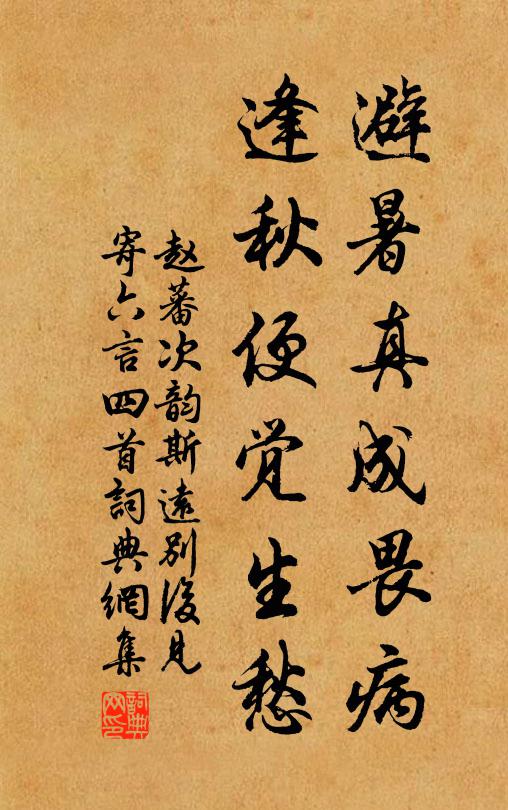 避暑真成畏病
逢秋便觉生愁
赵蕃次韵斯遠别後见
寄六言四首詞典網集
詞典
网印